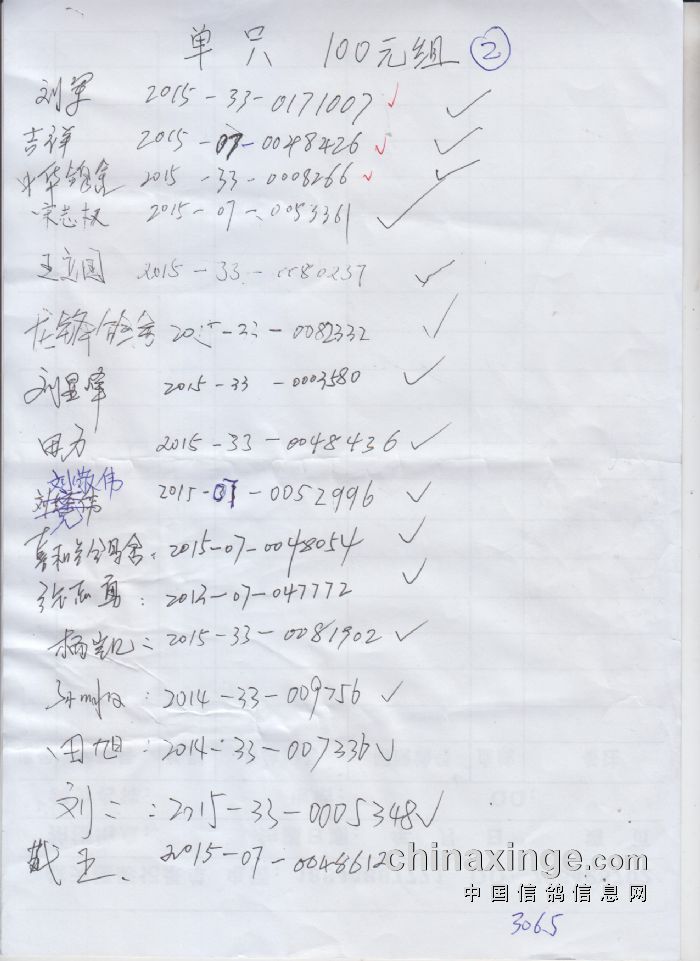 单只 100元组 ②
刘军 2015-33-0171007 ✓ ✓
吉祥 2015-07-0048426 ✓ ✓
中华鸽舍 2015-33-0008266 ✓ ✓
宋志权 2015-07-0053361 ✓
王立国 2015-33-0080237 ✓
龙锋鸽舍 2015-33-0082332 ✓
刘显峰 2015-33-0003580 ✓
田力 2015-33-0048436 ✓
刘敬伟 2015-07-0052996 ✓
喜和鸽舍. 2015-07-0048054 ✓
张志勇: 2013-07-047772 ✓
杨凯: 2015-33-0081902 ✓
: 2014-33-009756 ✓
田旭: 2014-33-007336 ✓
刘二: 2015-33-0005348 ✓
戴王. 2015-07-0048612
chinaxinge.com
中国信鸽信息网
3065